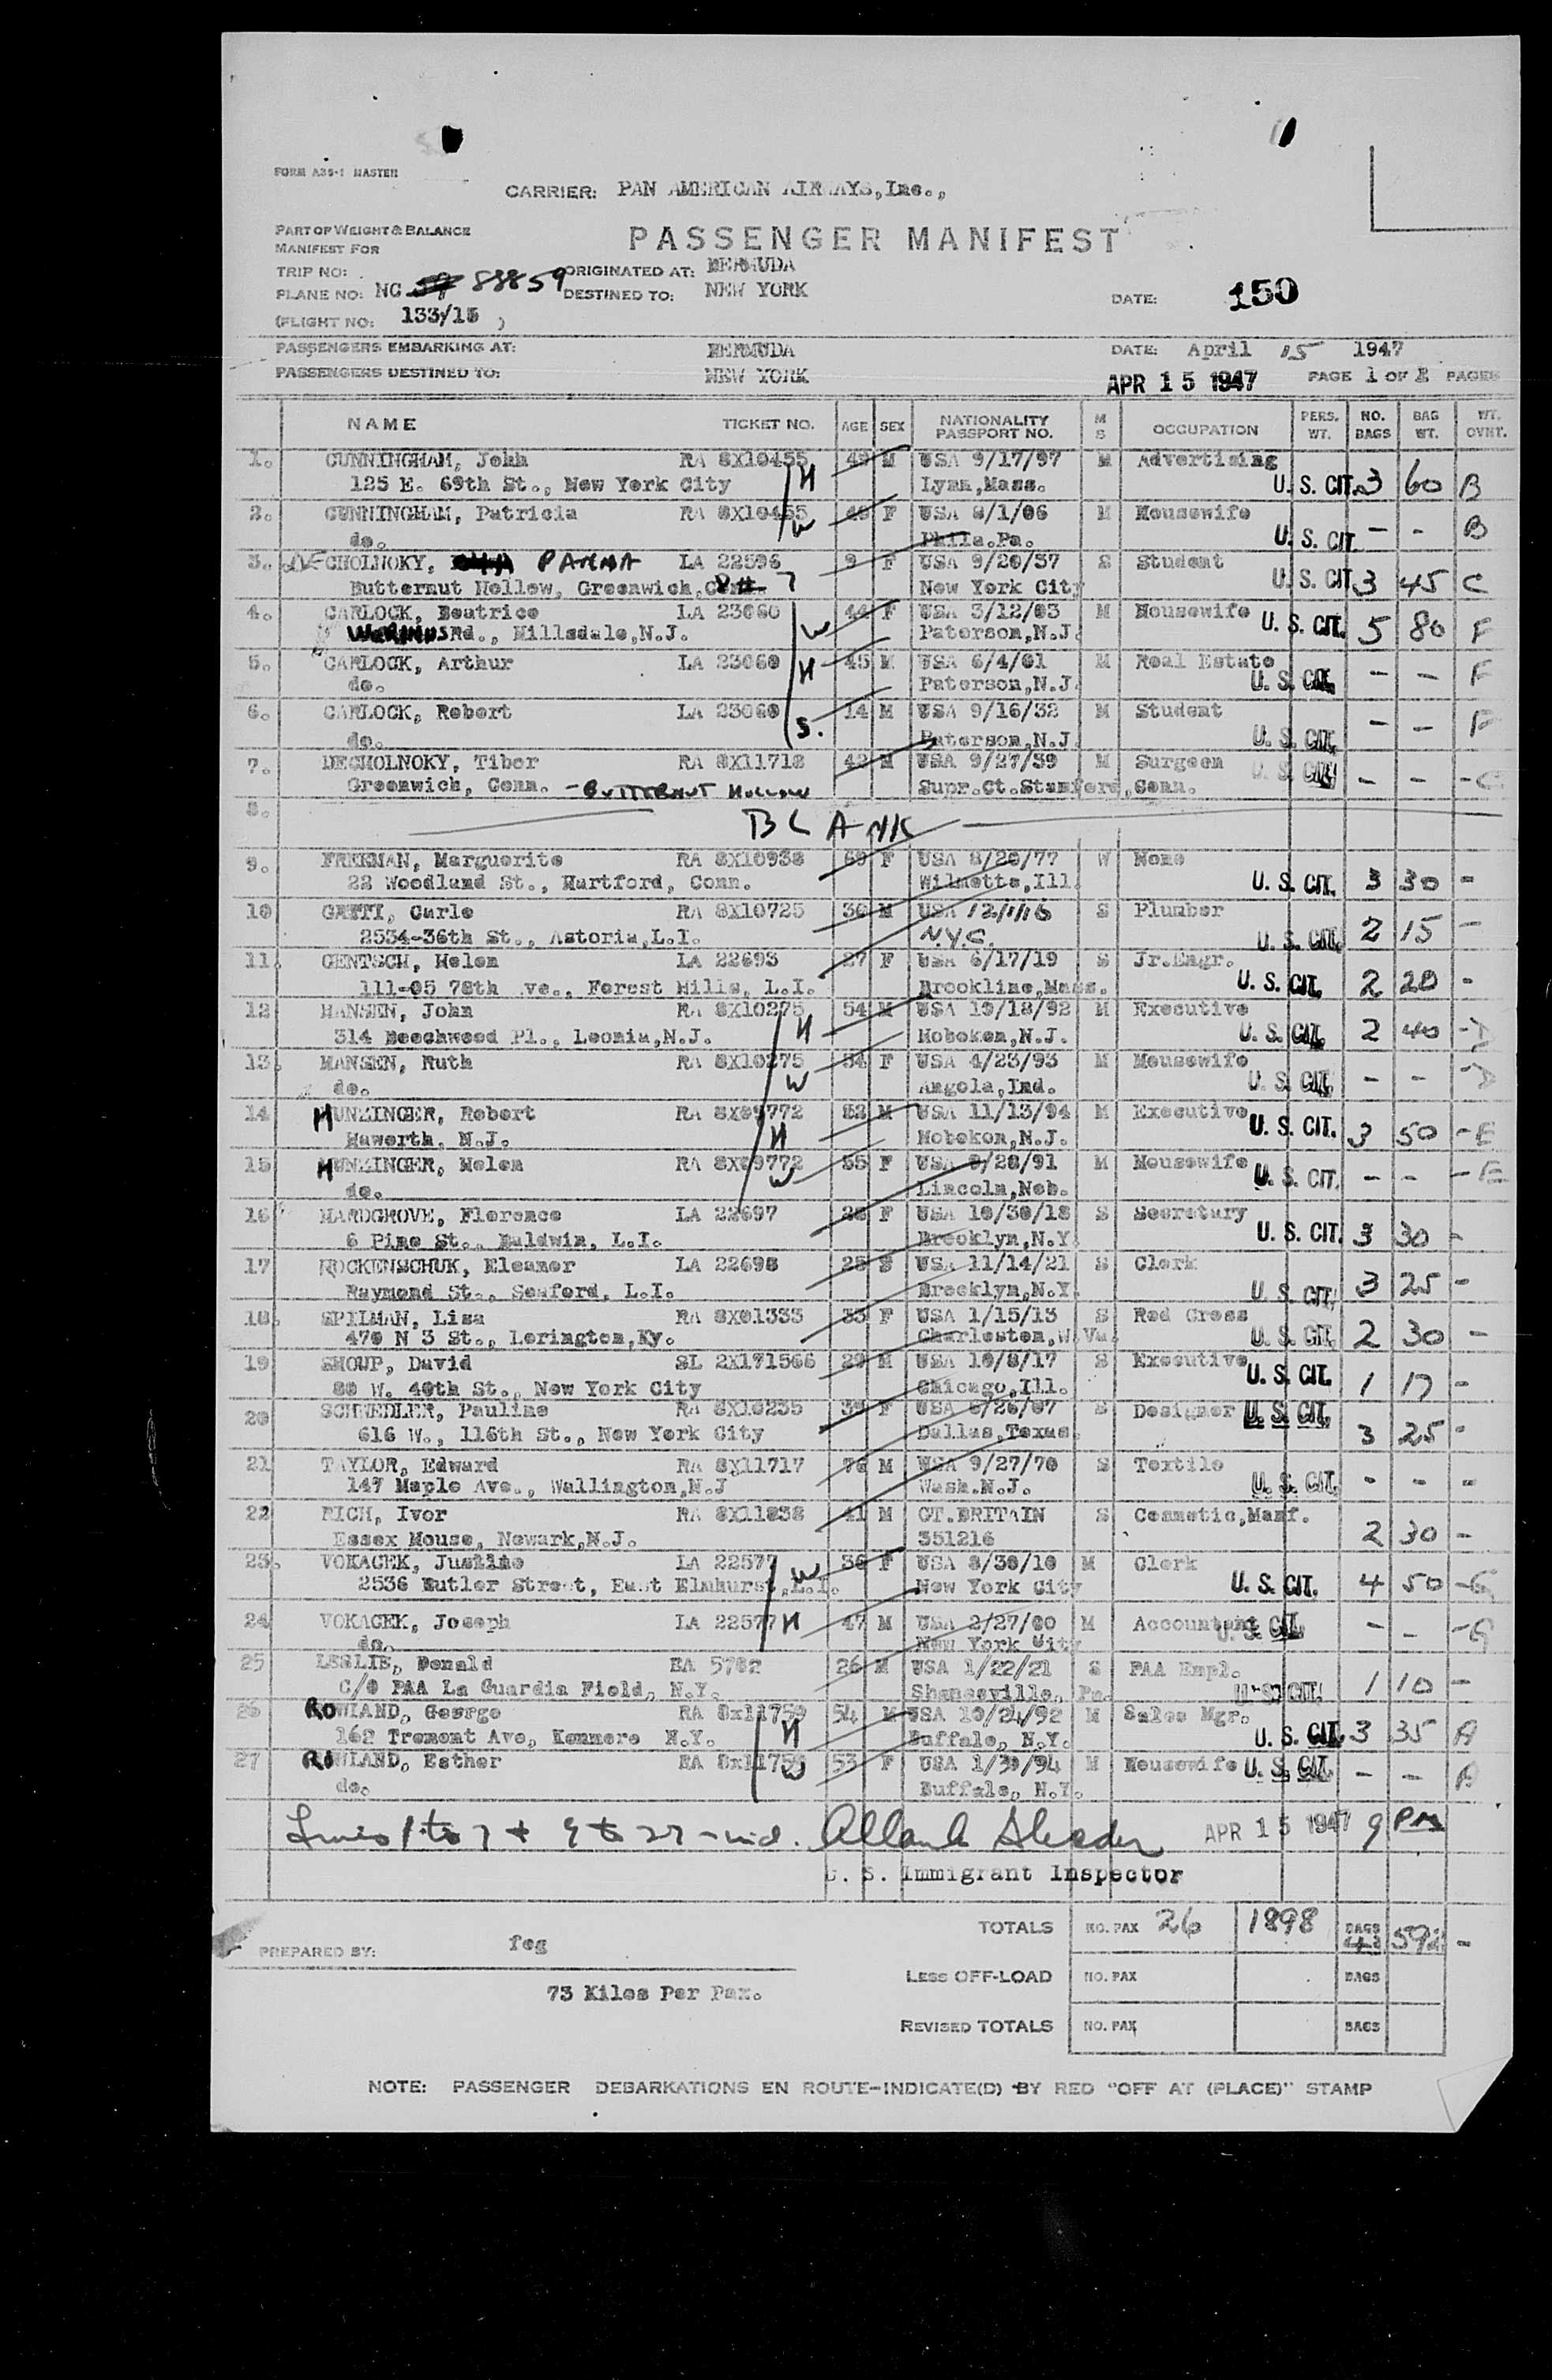 FORM A35-1 MASTER
CARRIER: PAN AMERICAN AIRWAYS, Inc.,
PART OF WEIGHT & BALANCE
MANIFEST FOR
PASSENGER MANIFEST
TRIP NO: ORIGINATED AT: BERMUDA
PLANE NO: NC 88859 DESTINED TO: NEW YORK DATE: 150
(FLIGHT NO: 133/15 )
PASSENGERS EMBARKING AT: BERMUDA DATE: April 15 1947
PASSENGERS DESTINED TO: NEW YORK APR 15 1947 PAGE 1 OF PAGES
NAME TICKET NO. AGE SEX NATIONALITY PASSPORT NO. M S OCCUPATION PERS. WT. NO. BAGS BAG WT. WT. OVHT.
1. CUNNINGHAM, John RA 8X10455 49 M USA 9/17/97 M Advertising
125 E. 69th St., New York City H Lynn, Mass. U. S. CIT. 3 60 B
2. CUNNINGHAM, Patricia RA 8X10455 40 F USA 8/1/06 M Housewife
do. W Phila. Pa. U. S. CIT - - B
3. DE CHOLNOKY, PAMMA LA 22596 9 F USA 9/20/37 S Student
Butternut Hollow, Greenwich, 7 New York City U. S. CIT 3 45 C
4. CARLOCK, Beatrice LA 23060 44 F USA 3/12/03 M Housewife
Rd., Hillsdale, N.J. W Paterson, N.J. U. S. CIT. 5 80 F
5. CARLOCK, Arthur LA 23060 45 M USA 6/4/01 M Real Estate
do. H Paterson, N.J. U. S. CIT. - - F
6. CARLOCK, Robert LA 23060 14 M USA 9/16/32 M Student
do. S. Paterson, N.J. U. S. CIT. - - F
7. DECHOLNOKY, Tibor RA 8X11718 42 M USA 9/27/39 M Surgeon U. S. CIT
Greenwich, Conn. - BUTTERNUT HOLLOW Supr. Ct. Stamford, Conn. - - - C
8. BLANK
9. FREEMAN, Marguerite RA 8X10938 69 F USA 8/20/77 W None
22 Woodland St., Hartford, Conn. Wilmette, Ill. U. S. CIT. 3 30 -
10 GATTI, Carlo RA 8X10725 30 M USA 12/1/16 S Plumber
2534-36th St., Astoria, L.I. N.Y.C. U. S. CIT. 2 15 -
11. GENTSCH, Helen LA 22693 27 F USA 6/17/19 S Jr.Engr.
111-05 78th Ave., Forest Hills, L.I. Brookline, Mass. U. S. CIT. 2 20 -
12 HANSEN, John RA 8X10275 54 M USA 10/18/92 M Executive
314 Beechwood Pl., Leonia, N.J. H Hoboken, N.J. U. S. CIT. 2 40 - D
13. HANSEN, Ruth RA 8X10275 54 F USA 4/23/93 M Housewife
do. W Angola, Ind. U. S. CIT. - - - D
14 HUNZINGER, Robert RA 8X09772 52 M USA 11/13/94 M Executive
Haworth, N.J. H Hoboken, N.J. U. S. CIT. 3 50 - E
15 HUNZINGER, Helen RA 8X09772 55 F USA 9/28/91 M Housewife
do. W Lincoln, Neb. U. S. CIT. - - - E
16 HARDGROVE, Florence LA 22697 28 F USA 10/30/18 S Secretary
6 Pine St., Baldwin, L.I. Brooklyn, N.Y. U. S. CIT. 3 30 -
17 ROCKENSCHUK, Eleanor LA 22698 25 F USA 11/14/21 S Clerk
Raymond St., Seaford, L.I. Brooklyn, N.Y. U. S. CIT. 3 25 -
18. SPILMAN, Lisa RA 8X01333 33 F USA 1/15/13 S Red Cross
470 N 3 St., Lorington, Ky. Charleston, W.Va. U. S. CIT. 2 30 -
19 SHOUP, David SL 2X171566 29 M USA 10/8/17 S Executive
80 W. 40th St., New York City Chicago, Ill. U. S. CIT. 1 17 -
20 SCHWEDLER, Pauline RA 8X10235 39 F USA 8/26/07 S Designer U. S. CIT.
616 W., 116th St., New York City Dallas, Texas. 3 25 -
21 TAYLOR, Edward RA 8X11717 76 M USA 9/27/70 S Textile
147 Maple Ave., Wallington, N.J Wash. N.J. U. S. CIT. - - -
22 RICH, Ivor RA 8X11838 41 M GT. BRITAIN S Cosmetic, Manf.
Essex House, Newark, N.J. 351216 2 30 -
23. VOKACEK, Justine LA 22577 W 36 F USA 8/30/10 M Clerk
2536 Butler Street, East Elmhurst, L.I. New York City U. S. CIT. 4 50 - G
24 VOKACEK, Joseph LA 22577 H 47 M USA 2/27/00 M Accountant U. S. CIT.
do. New York City - - - G
25 LESLIE, Donald EA 5702 26 M USA 1/22/21 S PAA Empl.
C/O PAA La Guardia Field, N.Y. Shanesville, Pa. U. S. CIT. 1 10 -
26 ROWLAND, George RA 8x11759 54 M USA 10/24/92 M Sales Mgr.
162 Tremont Ave, Kenmore N.Y. H Buffalo, N.Y. U. S. CIT. 3 35 A
27 ROWLAND, Esther RA 8x11759 53 F USA 1/30/94 M Housewife U. S. CIT.
do. W Buffalo, N.Y. - - A
Lines 1 to 7 + 9 to 27 - incl. APR 15 1947 9 PM
U. S. Immigrant Inspector
TOTALS NO. PAX 26 1898 BAGS 43 592 -
PREPARED BY: feg
LESS OFF-LOAD NO. PAX BAGS
73 Kilos Per Pax.
REVISED TOTALS NO. PAX BAGS
NOTE: PASSENGER DEBARKATIONS EN ROUTE-INDICATE(D) BY RED "OFF AT (PLACE)" STAMP